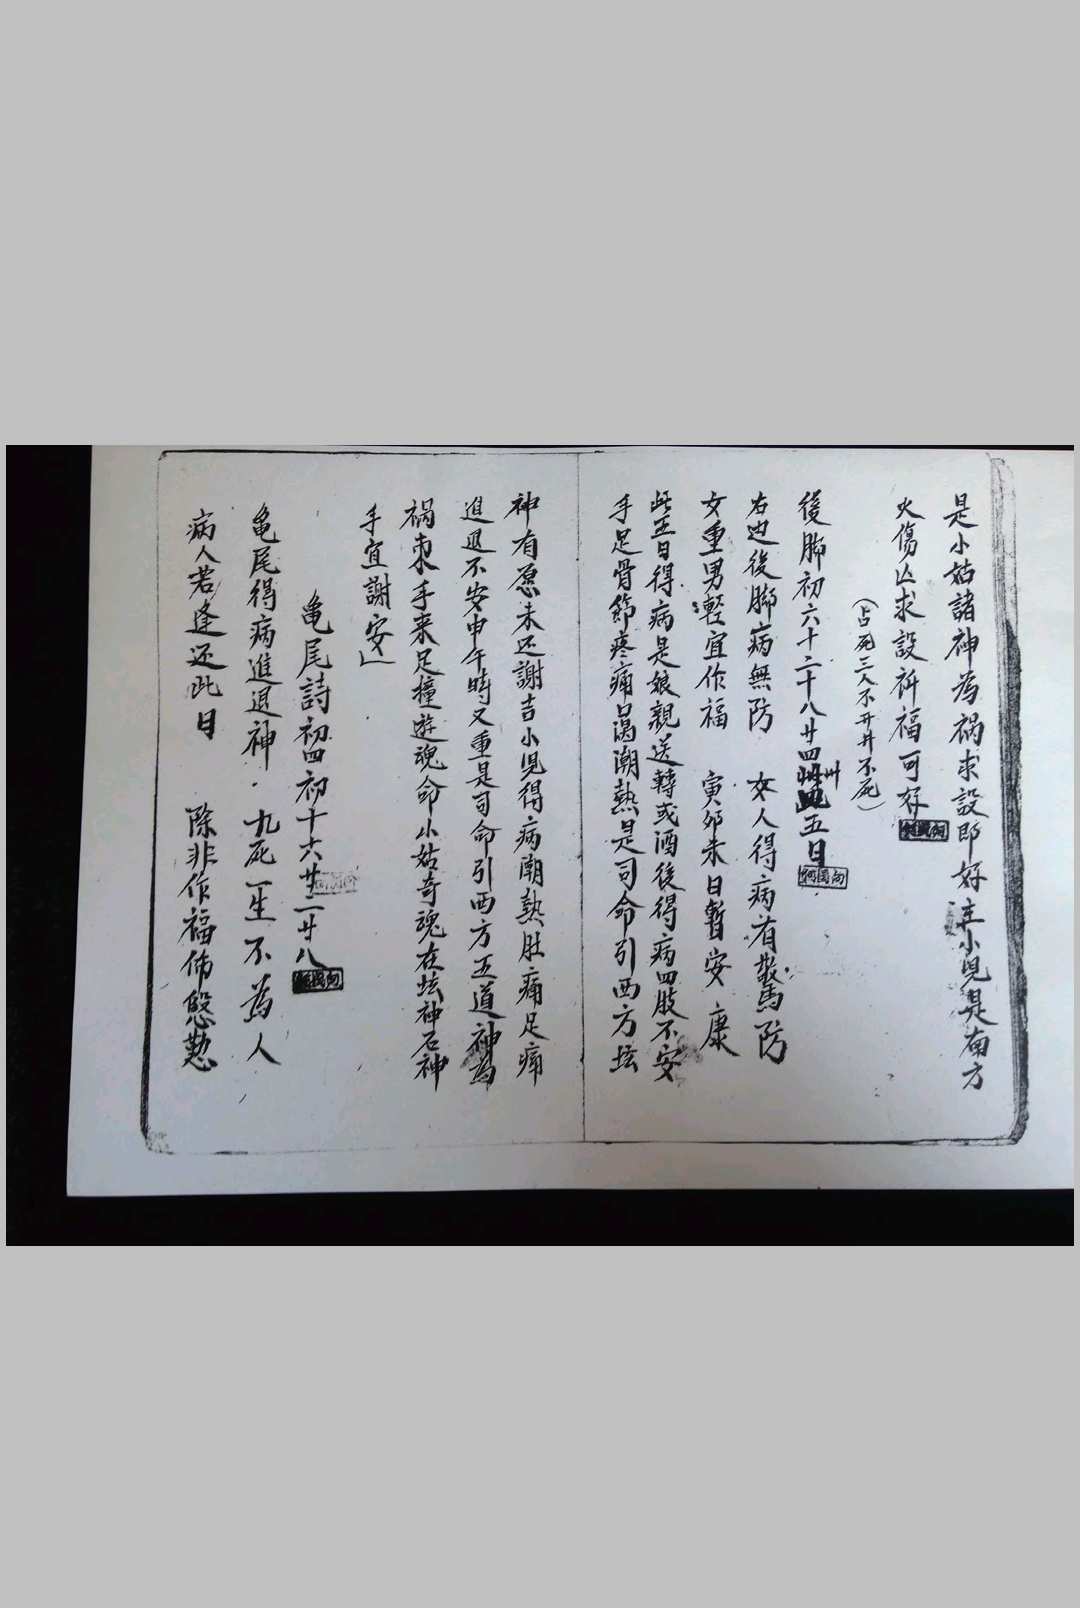 是小姑諸神為禍求設即好 小児是南方
火傷亡求設祈福可好
(占死三人不廾井不死)
後脚初六十二十八廿四 卅五日
右边後脚病無防 女人得病有驚防
女重男輕宜作福 寅卯未日暫安康
此五日得病是娘親送轉或酒後得病四肢不安
手足骨節疼痛口渴潮熱是司命引西方坛
神有愿未还謝吉小児得病潮熱肚痛足痛
進退不安申午時又重是司命引西方五道神為
禍 手来足撞遊魂命小姑奇魂在坛神石神
手宜謝安
亀尾詩初四初十十六廿二廿八
亀尾得病進退神 九死一生不為人
病人若逢还此日 除非作福 慇懃